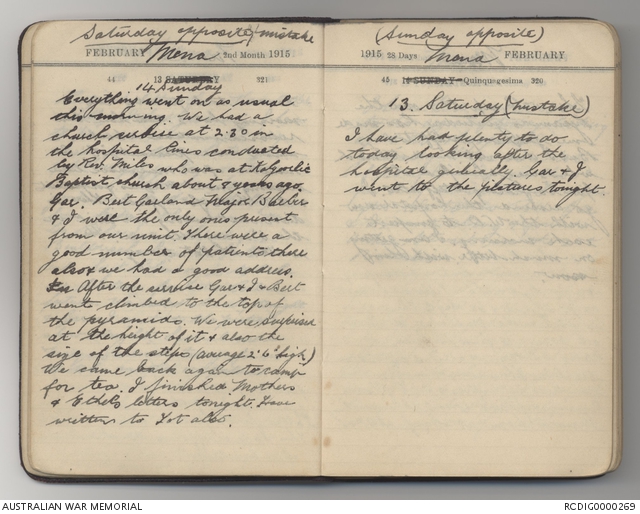 Saturday opposite/mistake
FEBRUARY Mena 2nd Month 1915
44 13 SATURDAY 321
14 Sunday
Everything went on as usual
this morning. We had a
church service at 2.30 in
the hospital lines conducted
by Rev. Miles who was at Kalgoorlie
Baptist church about 8 years ago.
Gar. Bert Garland & Major Barber
& I were the only ones present
from our unit. There were a
good number of patients there
also & we had a good address.
After the service Gar & I & Bert
went climbed to the top of
the pyramids. We were surprised
at the height of it & also the
size of the steps (average 2' 6" high)
We came back again to camp
for tea. I finished Mothers
& Ethels letters tonight. Have
written to Dot also.
(Sunday opposite)
1915 28 Days Mena FEBRUARY
45 14 SUNDAY-Quinquagesima 320
13. Saturday (mistake)
I have had plenty to do
today looking after the
hospital generally. Gar & I
went to the pictures tonight.
AUSTRALIAN WAR MEMORIAL
RCDIG0000269